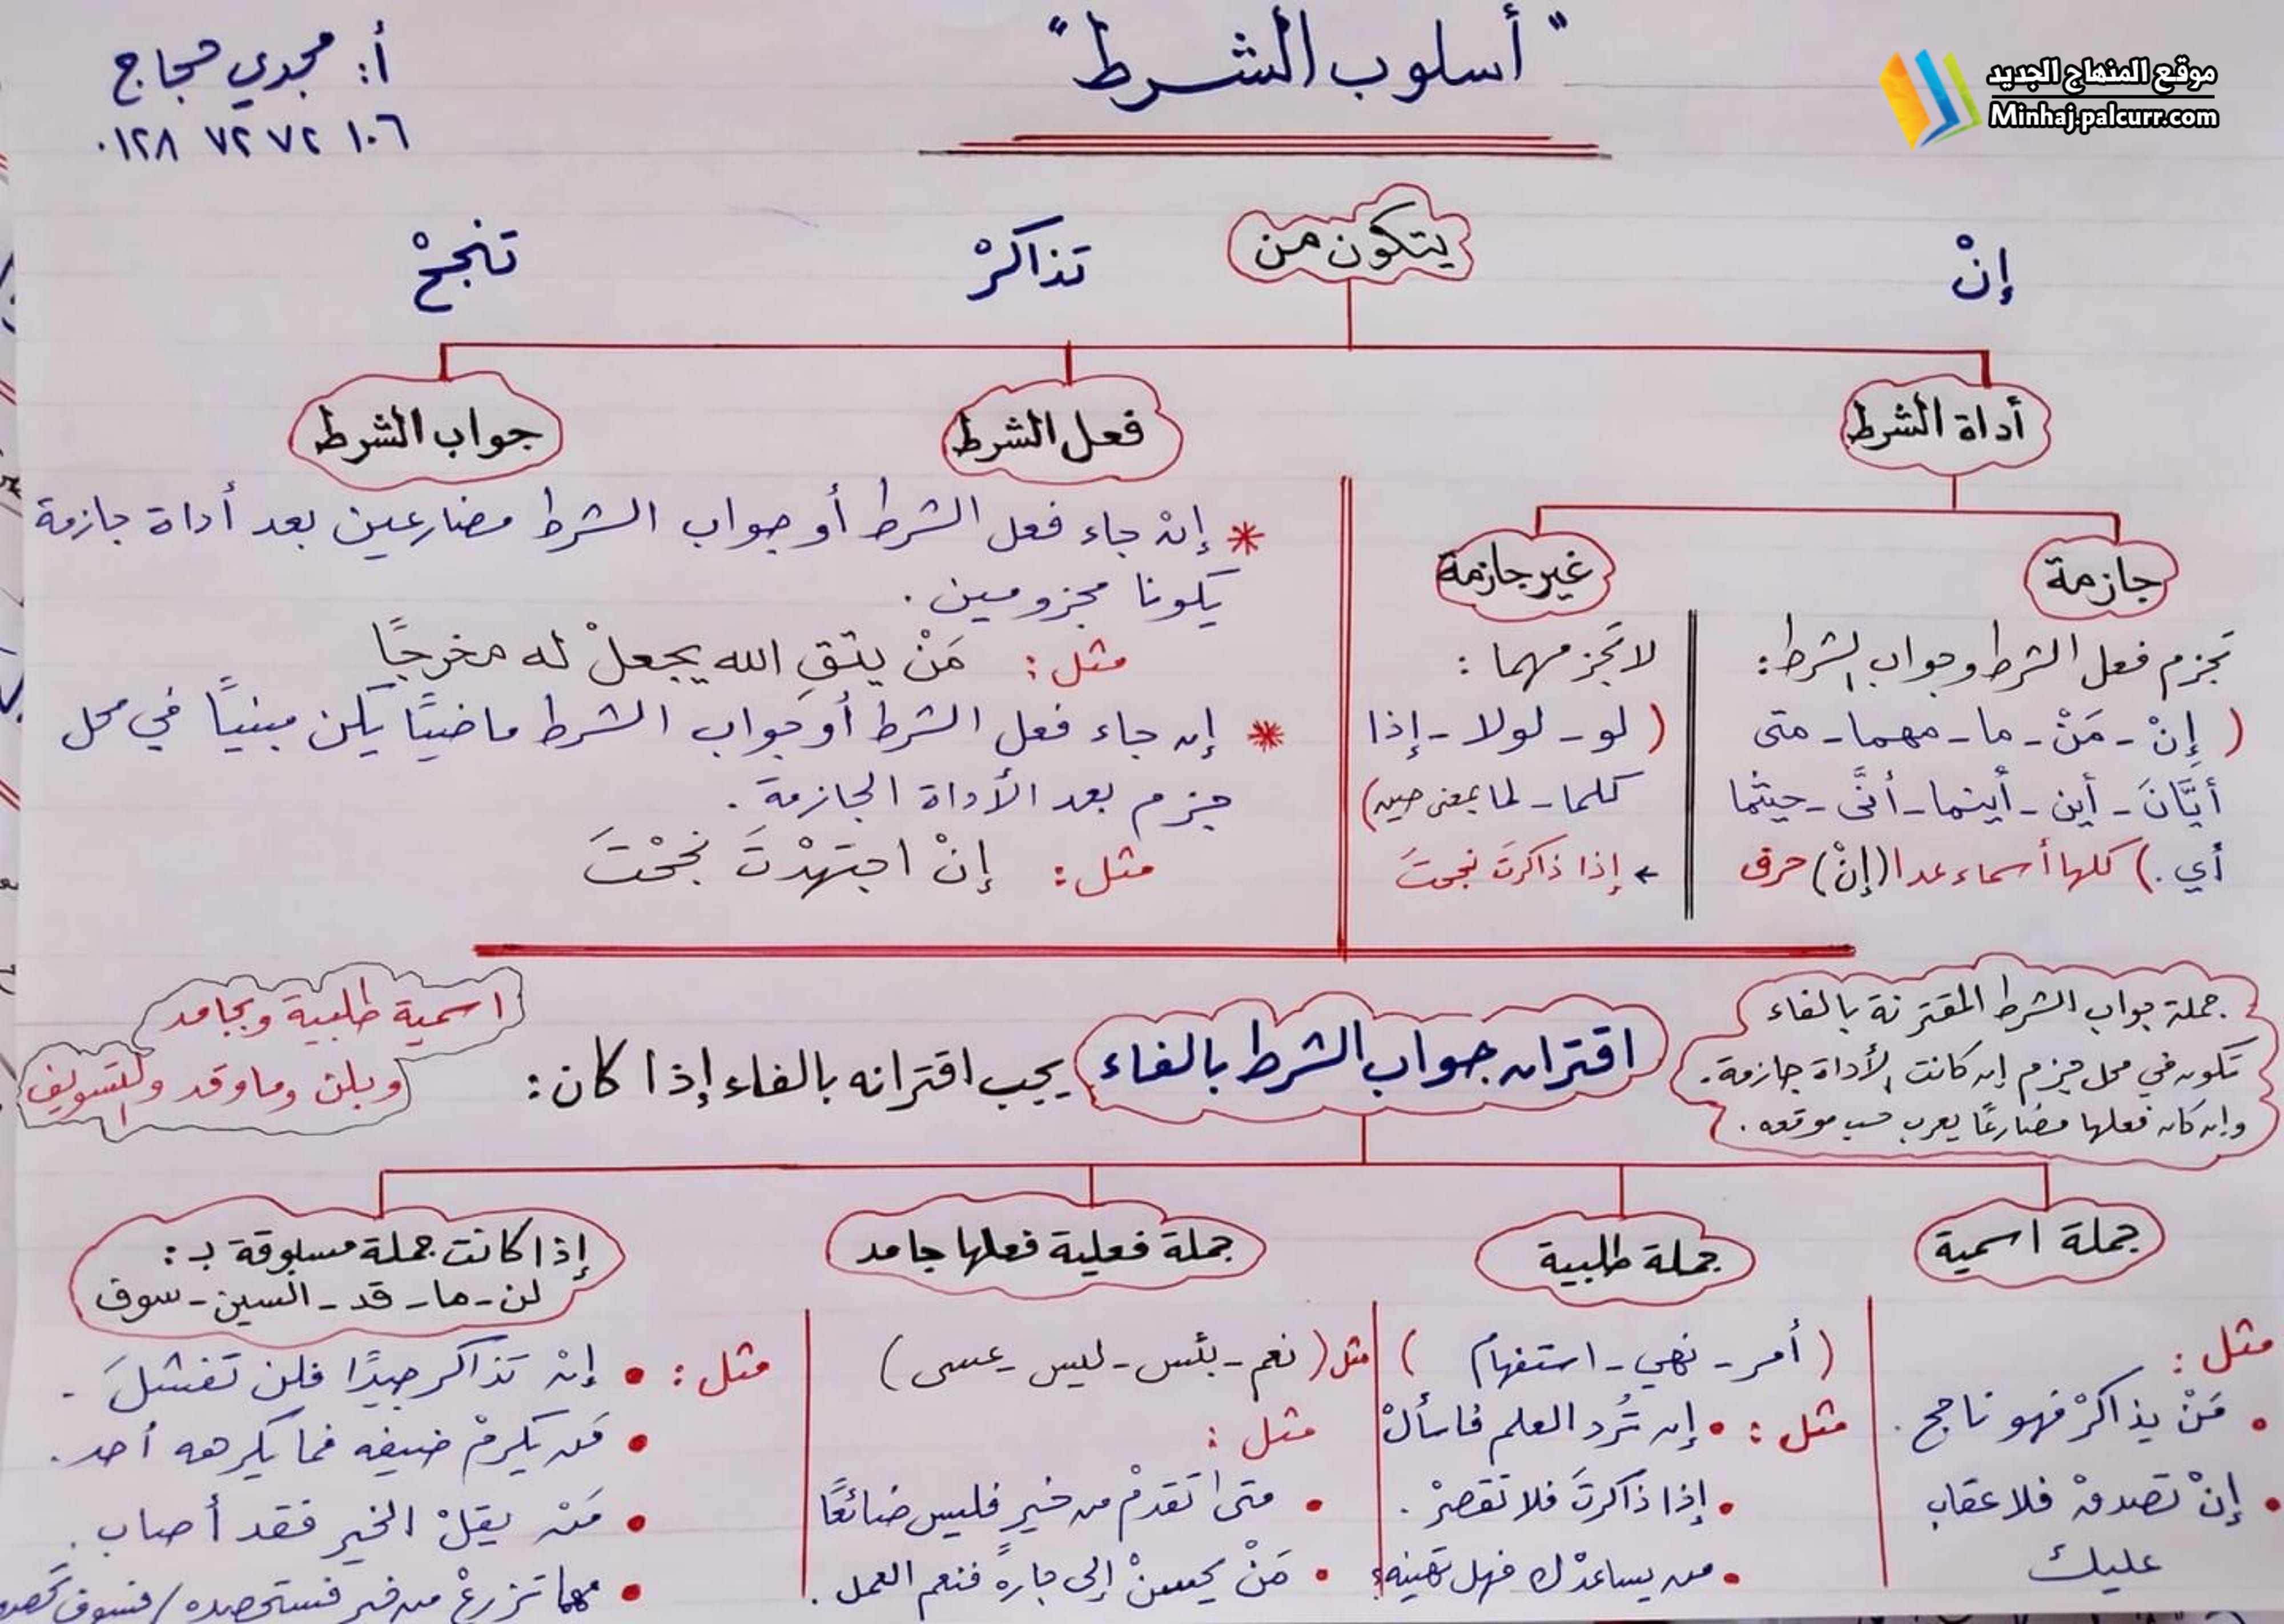 " أسلوب الشرط "
أ: مجدي حجاج
٠١٢٨ ٧٢ ٧٢ ١٠٦
موقع المنهاج الجديد
Minhaj.palcurr.com
يتكون من
إنْ
تذاكرْ
تنجحْ
أداة الشرط
فعل الشرط
جواب الشرط
جازمة
غير جازمة
تجزم فعل الشرط وجواب الشرط:
( إِنْ - مَنْ - ما - مهما - متى
أيَّانَ - أين - أينما - أنَّى - حيثما
أي .) كلها أسماء عدا (إنْ) حرف
لا تجزمهما :
( لو - لولا - إذا
كلما - لما بمعنى حين)
← إذا ذاكرتَ نجحتَ
* إنْ جاء فعل الشرط أو جواب الشرط مضارعين بعد أداة جازمة
يكونا مجزومين .
مثل : مَنْ يتقِ الله يجعلْ له مخرجًا
* إن جاء فعل الشرط أو جواب الشرط ماضيًا يكن مبنيًا في محل
جزم بعد الأداة الجازمة .
مثل : إنْ اجتهدْتَ نجحْتَ
جملة جواب الشرط المقترنة بالفاء
تكون في محل جزم إن كانت الأداة جازمة .
وإن كان فعلها مضارعًا يعرب حسب موقعه .
اقتران جواب الشرط بالفاء
يجب اقترانه بالفاء إذا كان :
اسمية طلبية وبجامد
وبلن وما وقد وللتسويف
جملة اسمية
جملة طلبية
جملة فعلية فعلها جامد
إذا كانت جملة مسبوقة بـ :
لن - ما - قد - السين - سوف
مثل :
• مَنْ يذاكرْ فهو ناجح .
• إنْ تصدقْ فلا عقاب
عليك
( أمر - نهي - استفهام )
مثل : • إن تُرد العلم فاسألْ
• إذا ذاكرتَ فلا تقصرْ .
• من يساعدْك فهل تهينه؟
مثل ( نعم - بئس - ليس - عسى )
مثل :
• متى تقدمْ من خيرٍ فليس ضائعًا
• مَنْ يحسنْ إلى جاره فنعم العمل .
مثل : • إنْ تذاكر جيدًا فلن تفشلَ .
• مَن يكرمْ ضيفه فما يكرهه أحد .
• مَنْ يقلْ الخير فقد أصاب .
• مهما تزرعْ من خير فستحصده / فسوف